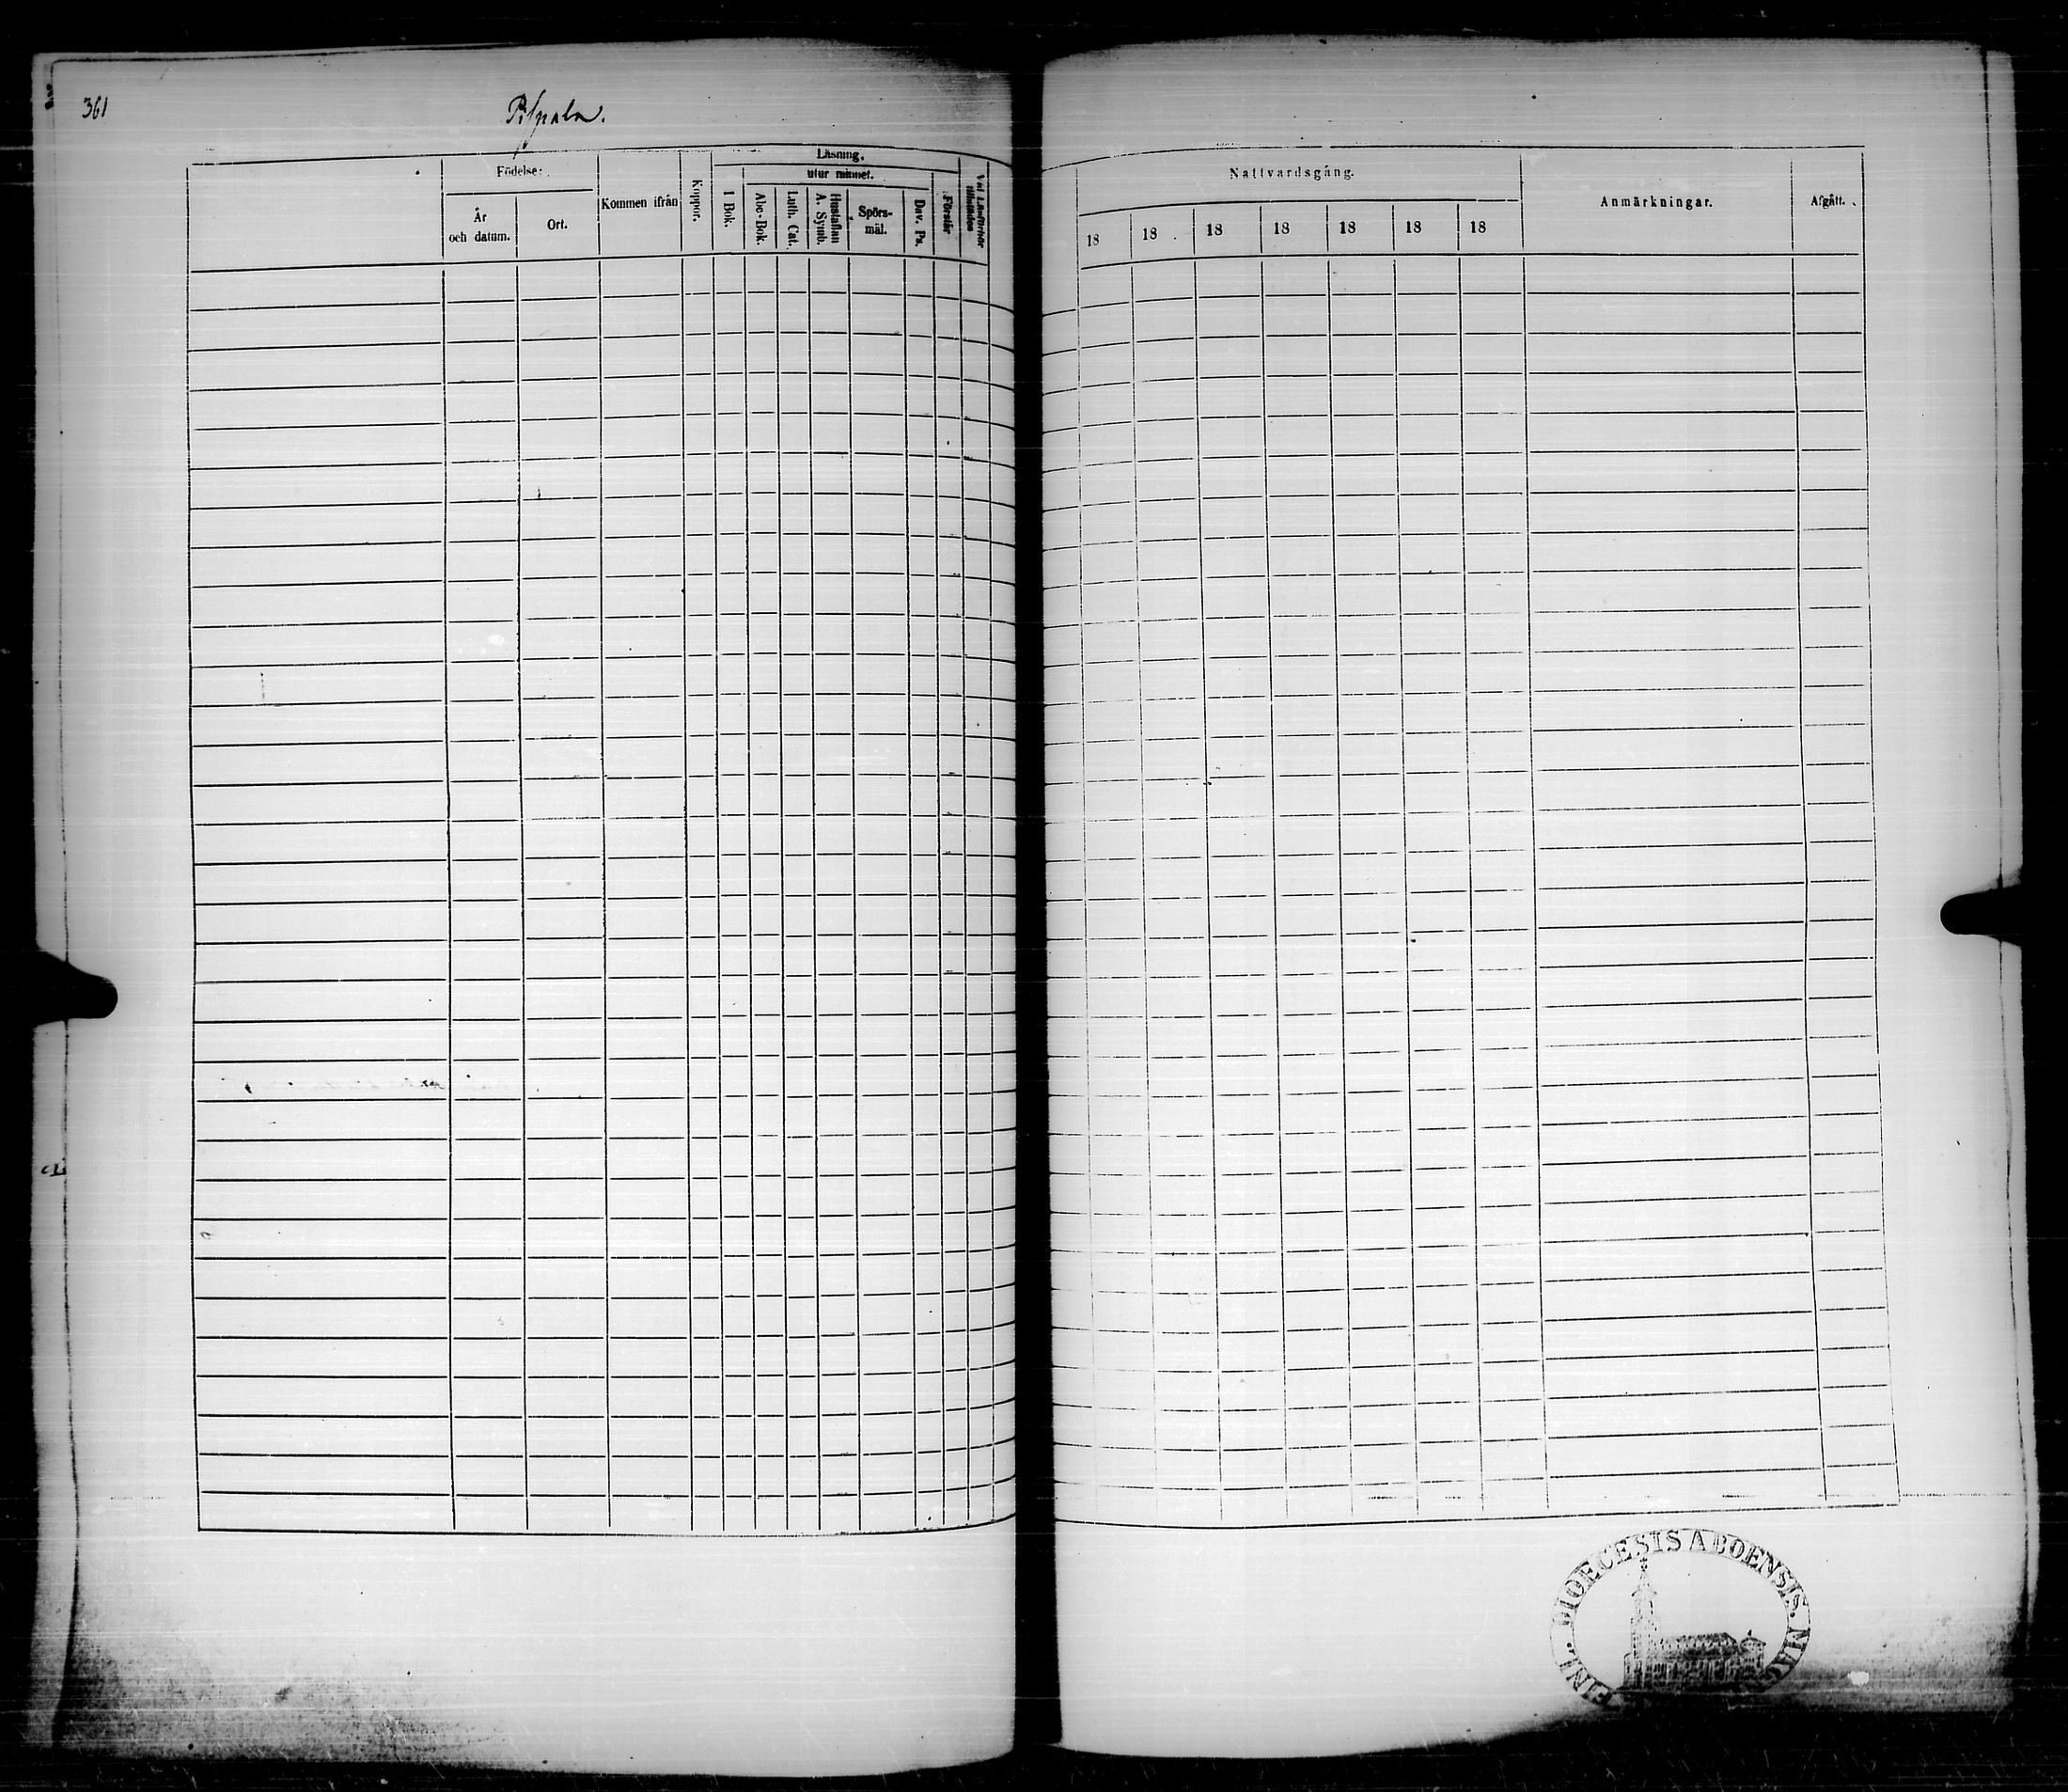 361
Pispala.
Födelse:
År
och datum.
Ort.
Kommen ifrån
Koppor.
Läsning.
utur minnet.
I Bok.
Abc-Bok.
Luth. Cat.
Hustaflan
A. Symb.
Spörs-
mål.
Dav. Ps.
Förstår
Vid Läsförhör
tillstädes
Nattvardsgång.
18 18 18 18 18 18 18
Anmärkningar.
Afgått.
DIOECESIS ABOENSIS. MAG
FINL.